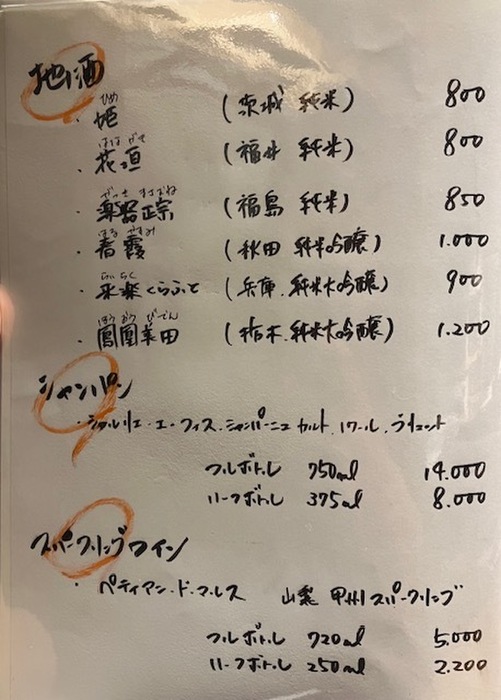 地酒
ひめ
・姫 (茨城 純米) 800
はな がき
・花垣 (福井 純米) 800
がっき まさむね
・楽器正宗 (福島 純米) 850
はる がすみ
・春霞 (秋田 純米吟醸) 1.000
らい らく
・来楽くらふと (兵庫.純米大吟醸) 900
ほう おう びでん
・鳳凰美田 (栃木.純米大吟醸) 1.200
シャンパン
フルボトル 750ml 14.000
ハーフボトル 375ml 8.000
スパークリングワイン
・ペティアン・ド・マルス 山梨 甲州スパークリング
フルボトル 720ml 5.000
ハーフボトル 250ml 2.200